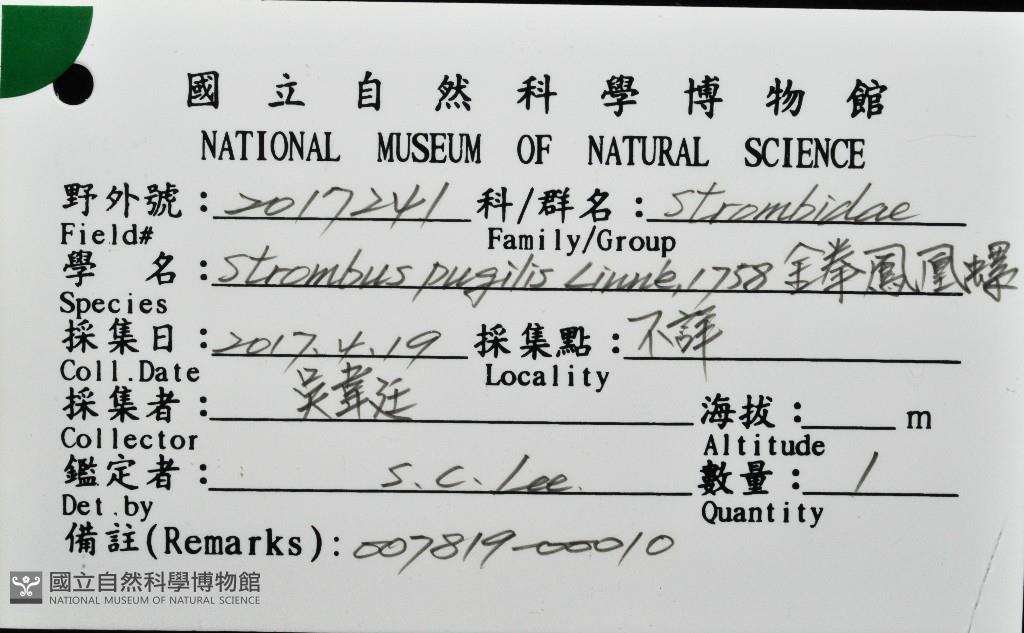 國立自然科學博物館
NATIONAL MUSEUM OF NATURAL SCIENCE
野外號：2017241 科/群名：Strombidae
Field# Family/Group
學名：Strombus pugilis Linné, 1758 金拳鳳凰螺
Species
採集日：2017.4.19 採集點：不詳
Coll.Date Locality
採集者：吳韋廷 海拔： m
Collector Altitude
鑑定者：S.C. Lee. 數量：1
Det.by Quantity
備註(Remarks)：007819-00010
國立自然科學博物館
NATIONAL MUSEUM OF NATURAL SCIENCE